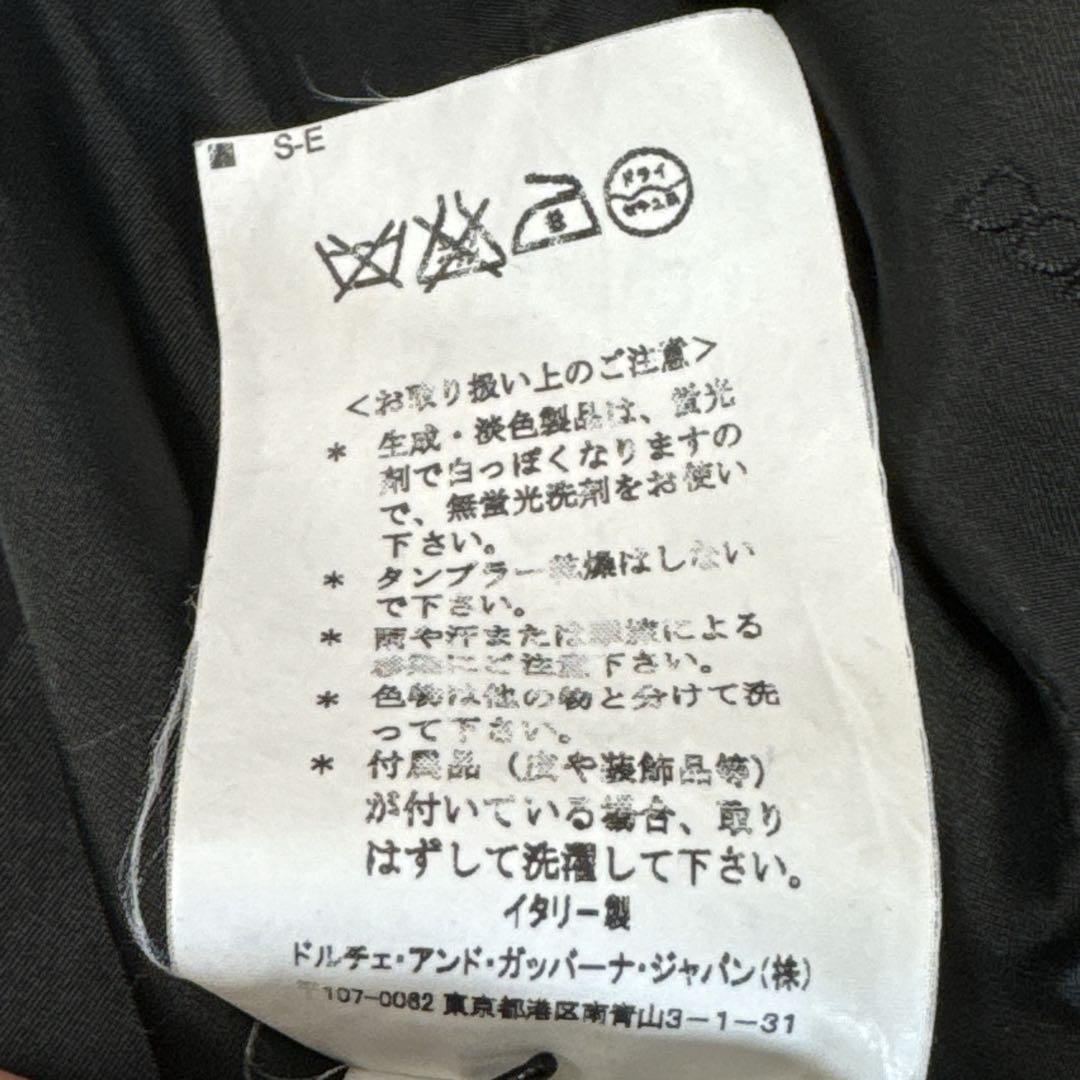 S-E
ドライ
セキユ系
<お取り扱い上のご注意>
* 生成・淡色製品は、蛍光
剤で白っぽくなりますの
で、無蛍光洗剤をお使い
下さい。
* タンブラー乾燥はしない
で下さい。
* 雨や汗または摩擦による
にご注意下さい。
* 色物は他の物と分けて洗
って下さい。
* 付属品(皮や装飾品等)
が付いている場合、取り
はずして洗濯して下さい。
イタリー製
ドルチェ・アンド・ガッバーナ・ジャパン(株)
〒107-0062 東京都港区南青山3-1-31